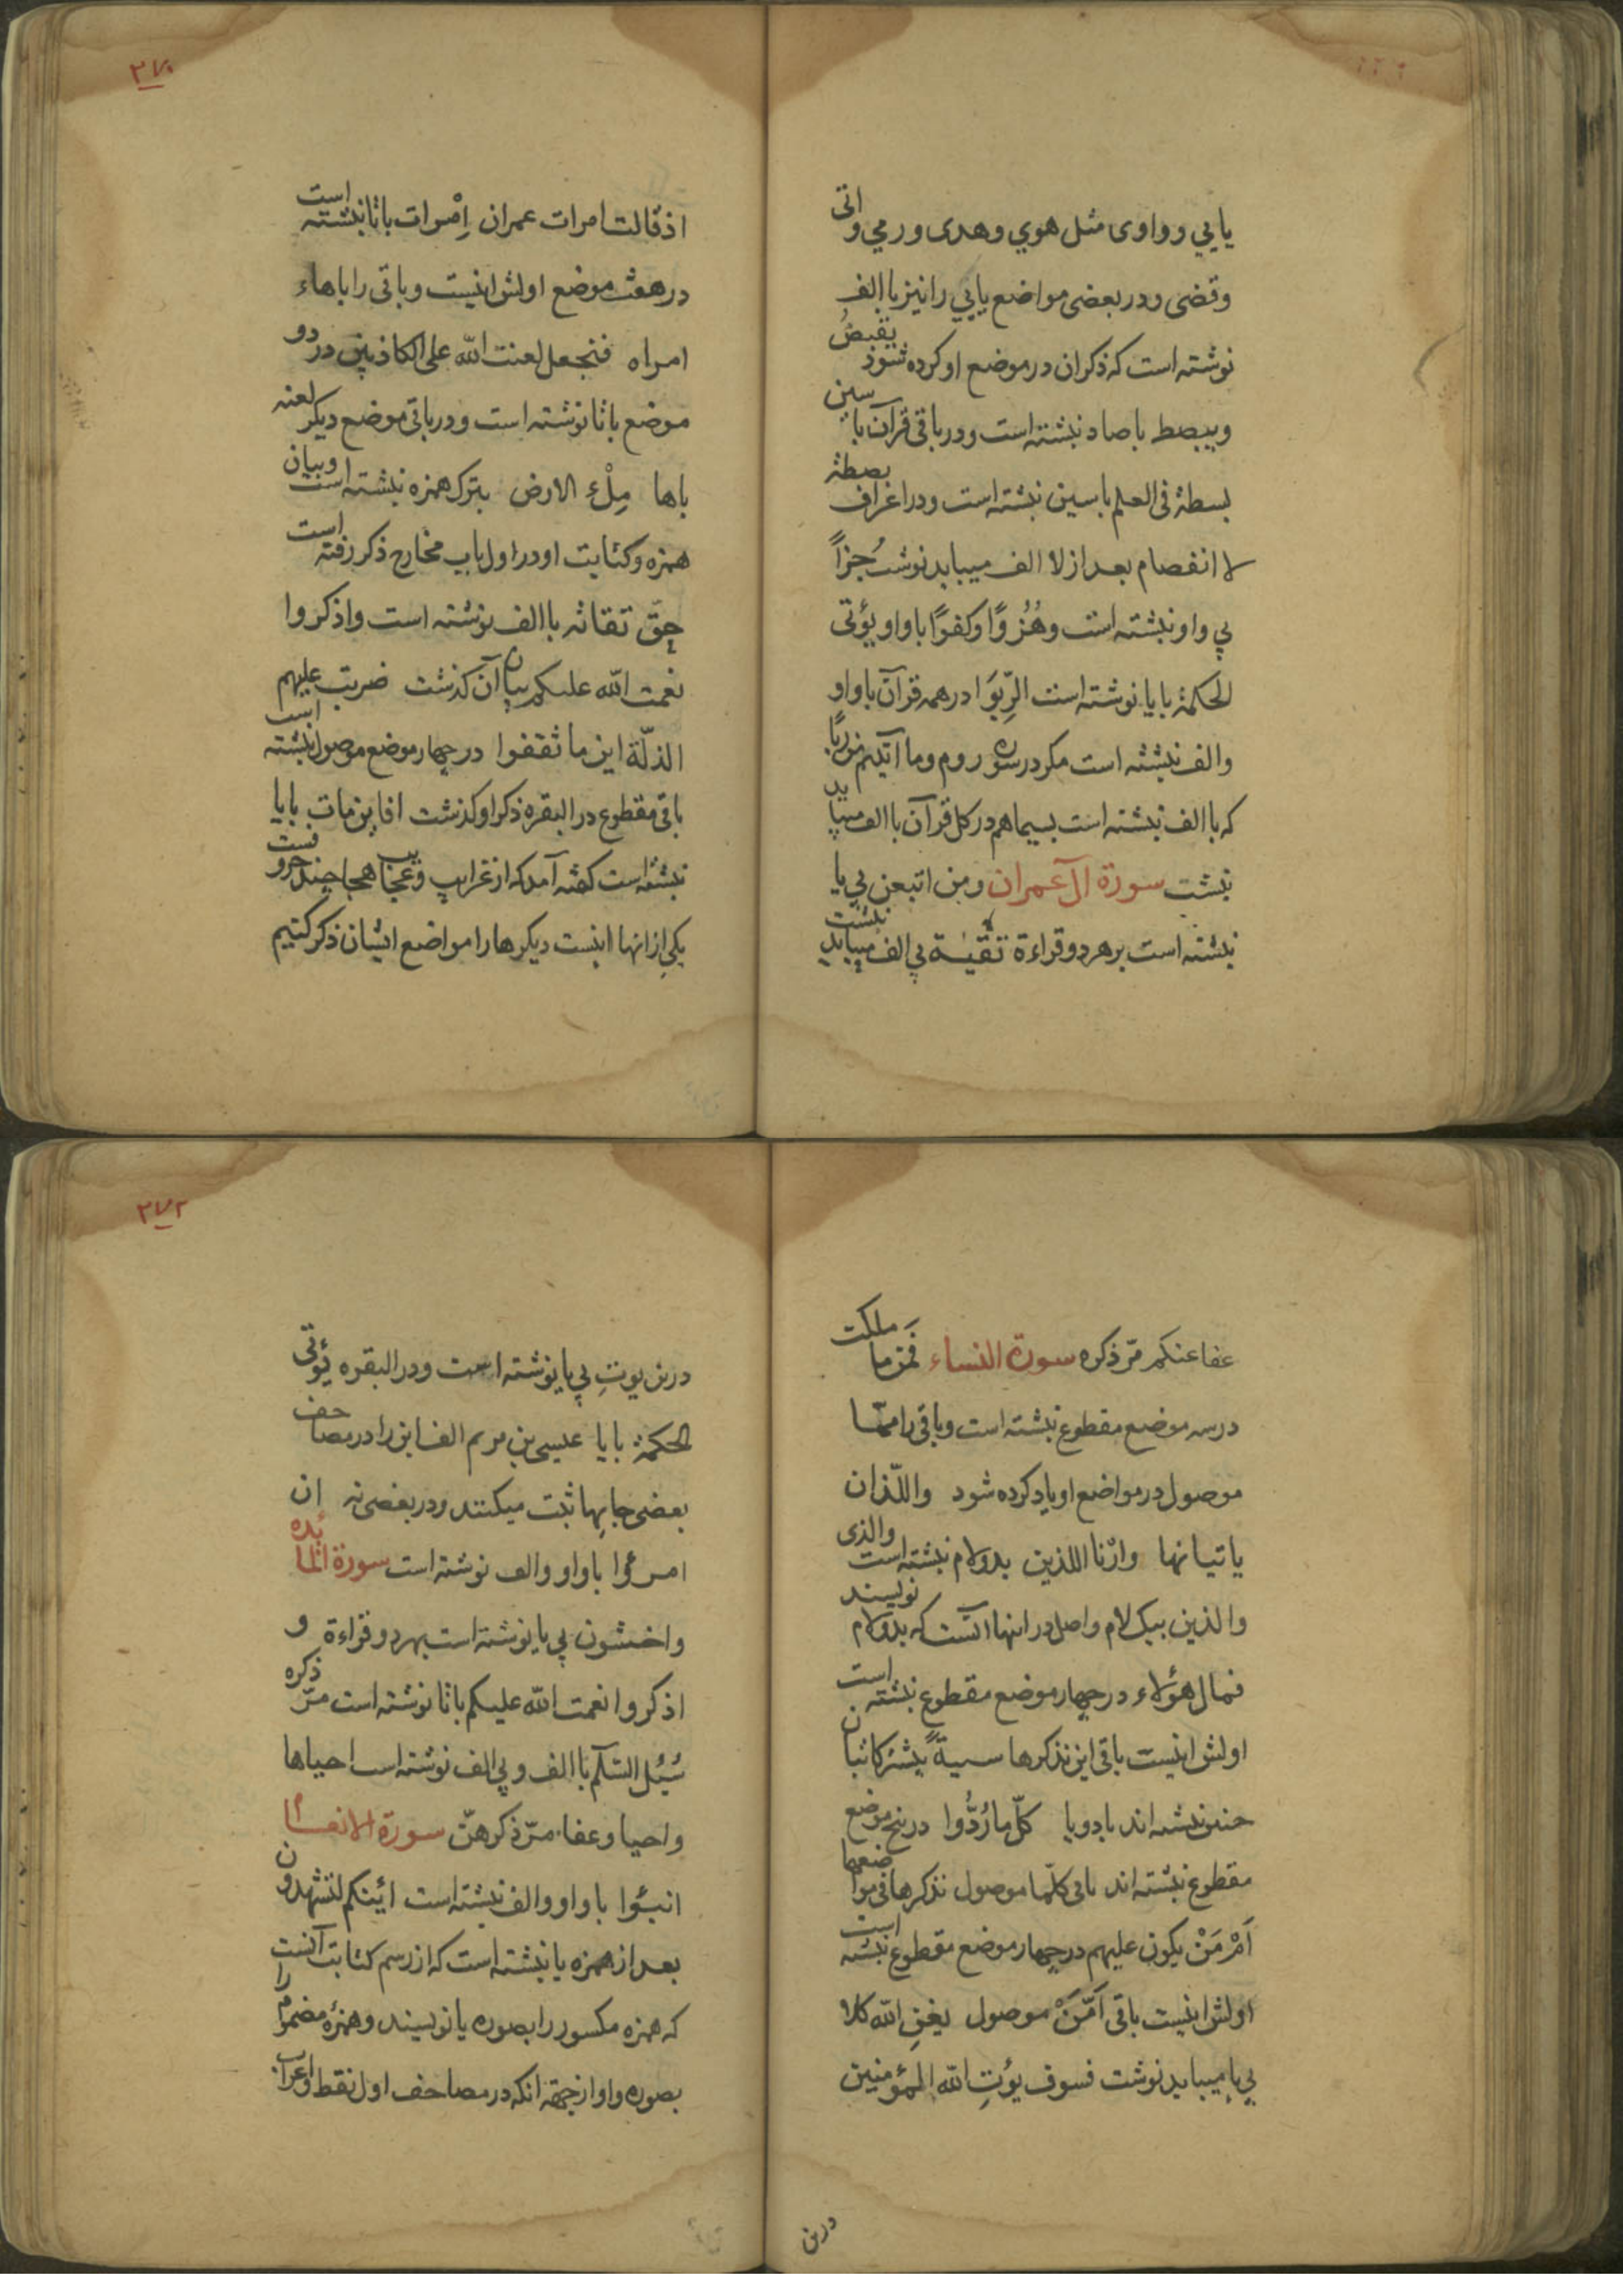 یایی و واوی مثل هوي وهدی ورمي واتی
وقضی ودر بعضی مواضع یایي را نیز باالف
نوشته است که ذکر ان در موضع او کرده شود یقبضُ
ویبصط باصاد نبشته است ودر باقی قرآن با سین
بسطة فی العلم باسین نبشته است ودر اعراف بصطة
لا انفصام بعد از لا الف میباید نوشت جُزاً
بي واو نبشته است وهُزُوًا وکفوًا باواو یؤتی
الحکمة بایا نوشته است الرِّبوَا در همه قرآن باواو
والف نبشته است مکر در سوره روم وما آتیتم من ربًا
که باالف نبشته است بسیماهم در کل قرآن باالف میباید
نبشت سورة آل عمران ومن اتبعن بي یا
نبشته است برهر دو قراءة تقیة بي الف میباید نبشت
۲۷۰
اذ قالت امرات عمران اِمْرات باتا نبشته است
در هفت موضع اولش اینست وباقی را باهاء
امراه فنجعل لعنت الله علی الکاذبین در دو
موضع باتا نوشته است ودر باقی موضع دیکر لعنه
باها مِلْءُ الارض بترك همزه نبشته است وبیان
همزه وکتابت او در اول باب مخارج ذکر رفته است
حقّ تقاته باالف نوشته است واذکروا
نعمت الله علیکم بیان آن کذشت ضربت علیهم
الذلّة این ما ثقفوا در چهار موضع موصول نبشته است
باقی مقطوع در البقره ذکر او کذشت افاین مات بایا
نبشته است کفته آمد که از غرایب وعجایب هجا چند حروفست
یکی از انها اینست دیکرها را مواضع ایشان ذکر کنیم
عفا عنکم مرّ ذکره سورة النساء فَمِن ما ملکت
در سه موضع مقطوع نبشته است وباقی را ممّا
موصول در مواضع او یاد کرده شود واللّذان
یاتیانها وارْنا اللذین بدو لام نبشته است والذی
والذین بیک لام واصل در اینها آنست که بدو لام نویسند
فمال هؤلاء در چهار موضع مقطوع نبشته است
اولش اینست باقی این نذکرها سیةً بیشتر کاتبان
چنین نبشته اند بادو یا کلّ ما رُدُّوا در پنج موضع
مقطوع نبشته اند باقی کلّما موصول نذکرها فی مواضعها
اَمْ مَنْ یکون علیهم در چهار موضع مقطوع نبشته است
اولش اینست باقی اَمَّنْ موصول یغنِ الله کلا
بي یا میباید نوشت فسوف یؤتِ الله المؤمنین
درین
۲۷۲
درین یوتِ بي یا نوشته است ودر البقره یؤتی
الحکمة بایا عیسی بن مریم الف ابن را در مصاحف
بعضی جایها ثبت میکنند ودر بعضی نه ان
امرؤا باواو والف نوشته است سورة المائده
واخشون بي یا نوشته است بهر دو قراءة و
اذکروا نعمت الله علیکم باتا نوشته است مرّ ذکره
سُبُل السّلم باالف وبي الف نوشته است احیاها
واحیا وعفا مرّ ذکرهنّ سورة الانعام
انبؤا باواو والف نبشته است ائینکم لتشهدون
بعد از همزه یا نبشته است که از رسم کتابت آنست
که همزه مکسور را بصوره یا نویسند وهمزهٔ مضموم را
بصوره واو از جهة انکه در مصاحف اول نقط واعراب